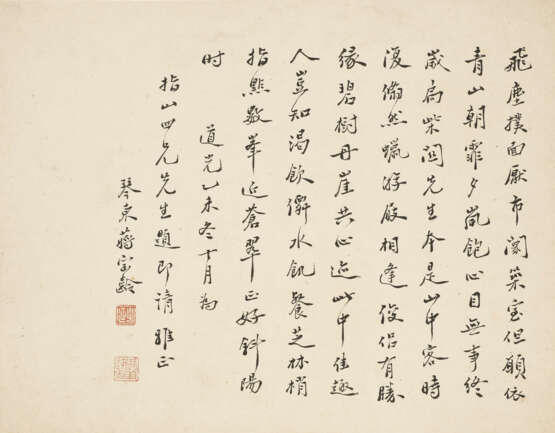 飛塵撲面厭市闤築室但願依
青山朝霏夕嵐飽心目無事終
歲扃柴関先生本是山中客時
復翛然蠟游屐相逢俊侶有勝
緣碧樹丹崖共心迹此中佳趣
人豈知渴飲磵水飢餐芝林梢
指點數峯近蒼翠正好斜陽
时 道光乙未冬十月為
指山四兄先生題即請雅正
琴東蔣宝齡